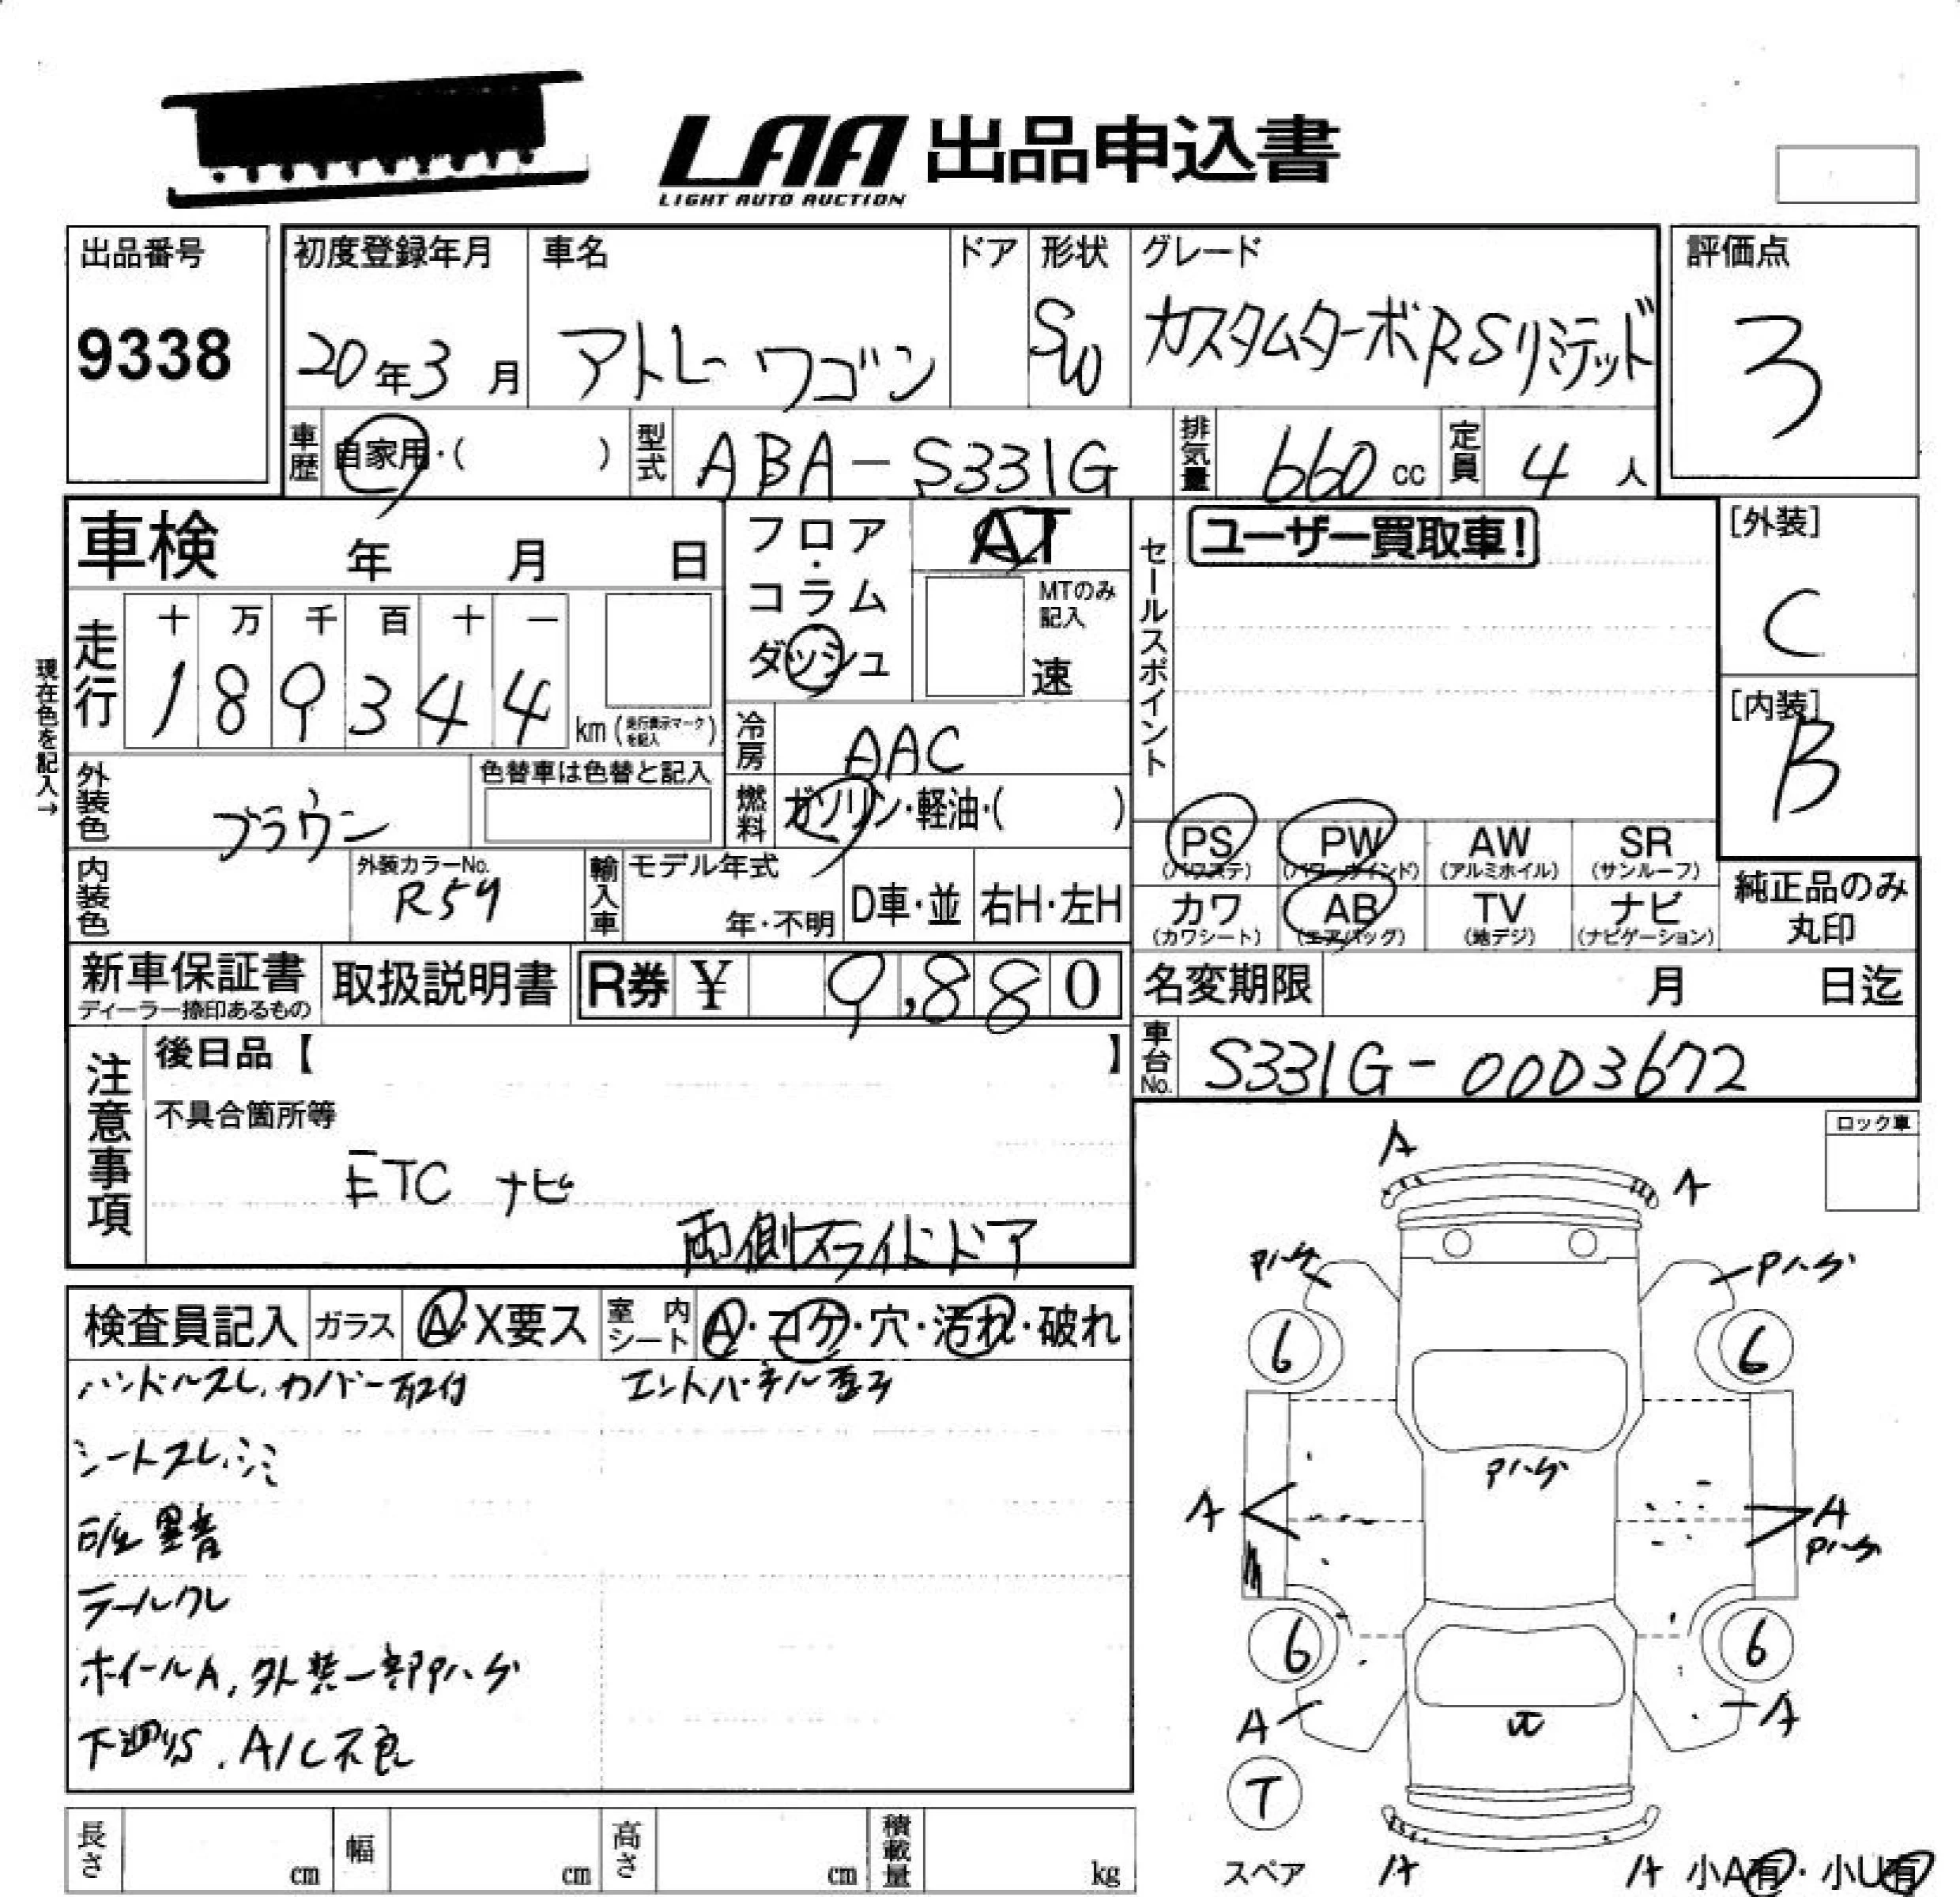 LAA 出品申込書
LIGHT AUTO AUCTION
出品番号
9338
初度登録年月
20年3月
車名
アトレーワゴン
ドア
形状
SW
グレード
カスタムターボRSリミテッド
評価点
3
車歴
自家用・( )
型式
ABA-S331G
排気量
660 cc
定員
4人
車検 年 月 日
フロア・コラム
ダッシュ
AT
MTのみ記入
速
セールスポイント
ユーザー買取車!
[外装]
C
[内装]
B
現在色を記入→
走行
十 万 千 百 十 一
1 8 9 3 4 4
km (走行表示マークを記入)
冷房
AAC
燃料
ガソリン・軽油・( )
外装色
ブラウン
色替車は色替と記入
内装色
外装カラーNo.
R59
輸入車
モデル年式
年・不明
D車・並
右H・左H
PS (パワステ)
PW (パワーウインド)
AW (アルミホイル)
SR (サンルーフ)
カワ (カワシート)
AB (エアバッグ)
TV (地デジ)
ナビ (ナビゲーション)
純正品のみ
丸印
新車保証書
ディーラー捺印あるもの
取扱説明書
R券 ¥ 9,880
名変期限 月 日迄
車台No.
S331G-0003672
注意事項
後日品【 】
不具合箇所等
ETC ナビ
両側スライドドア
ロック車
検査員記入
ガラス
A・X要ス
室内シート
A・コゲ・穴・汚れ・破れ
ハンドルスレ、カバー取付
エンドパネル歪ミ
シートスレ、シミ
異音
テールワレ
ホイールA、外装一部Pハゲ
下廻りS、A/C不良
A
A
Pハゲ
Pハゲ
6
6
Pハゲ
A
A
Pハゲ
6
6
A
A
T
スペア
A
A
小A有・小U有
長さ cm
幅 cm
高さ cm
積載量 kg